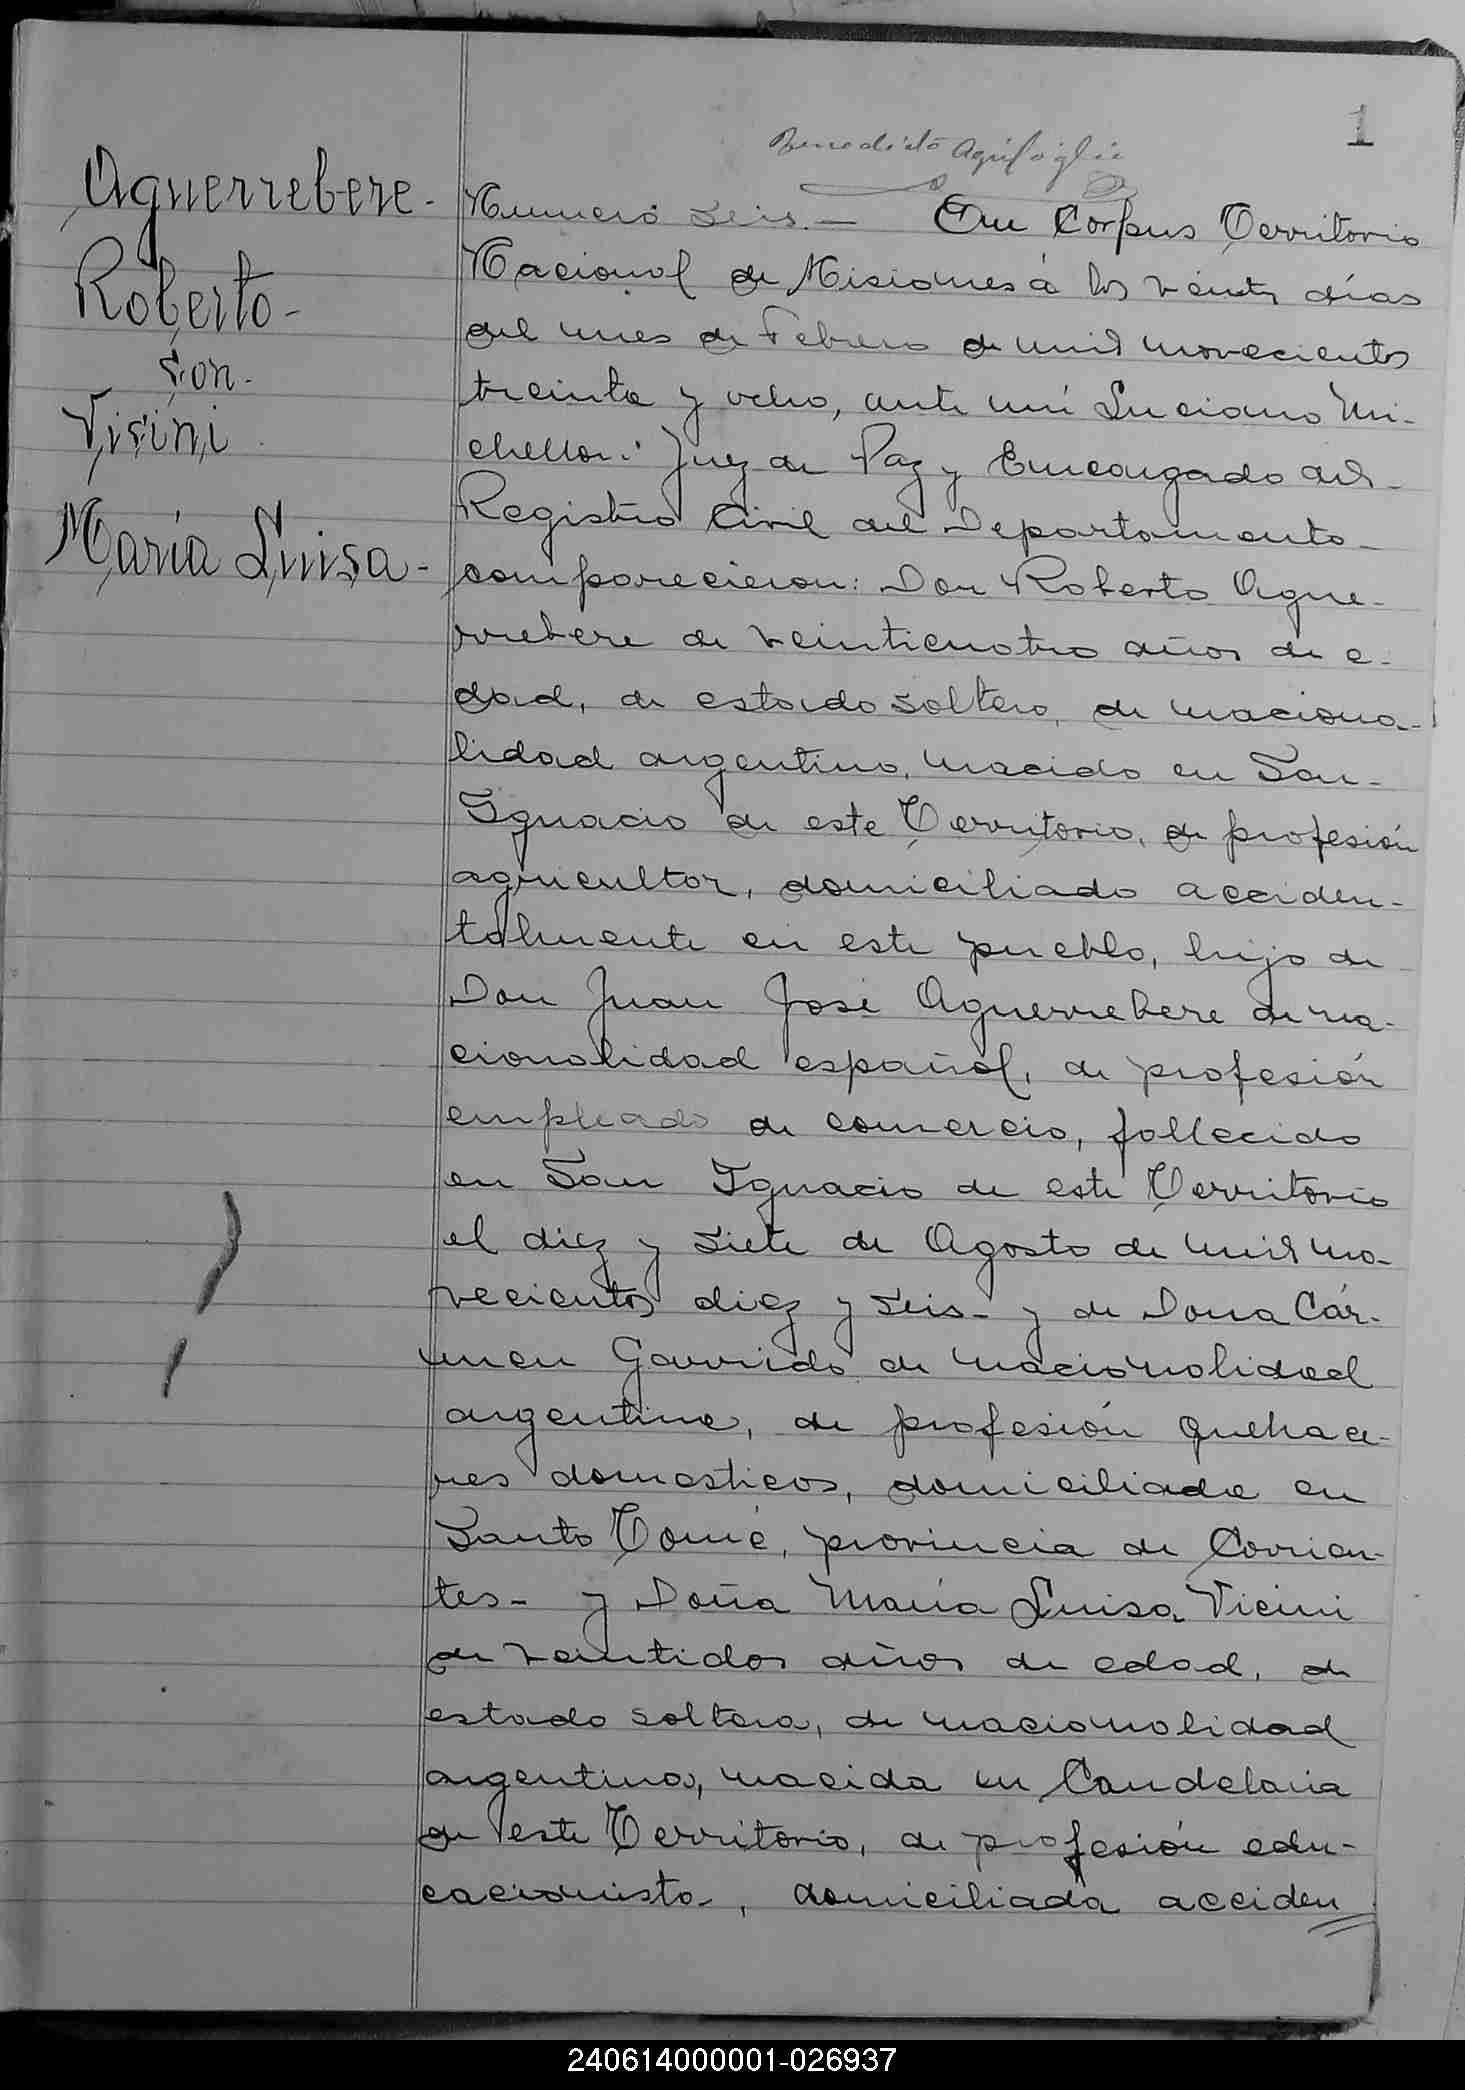 1
Benedicto
Aguerrebere-
Roberto-
con-
Visini
María Luisa-
Numero seis.- En Corpus Territorio
Nacional de Misiones á los veinte días
del mes de Febrero de mil novecientos
treinta y ocho, ante mi Luciano Mi-
chellon: Juez de Paz y Encargado del-
Registro Civil del Departamento-
comparecieron: Don Roberto Ague-
rrebere de veinticuatro años de e-
dad, de estado soltero, de naciona-
lidad argentino, nacido en San-
Ignacio de este Territorio, de profesión
agricultor, domiciliado acciden-
talmente en este pueblo, hijo de
Don Juan José Aguerrebere de na-
cionalidad español, de profesión
empleado de comercio, fallecido
en San Ignacio de este Territorio
el diez y siete de Agosto de mil no-
vecientos diez y seis- y de Dona Cár-
men Garrido de nacionalidad
argentina, de profesión quehace-
res domesticos, domiciliada en
Santo Tomé, provincia de Corrien-
tes- y Doña María Luisa Vicini
de veintidos años de edad, de
estado soltera, de nacionalidad
argentina, nacida en Candelaria
de este Territorio, de profesión edu-
cacionista, domiciliada acciden
240614000001-026937